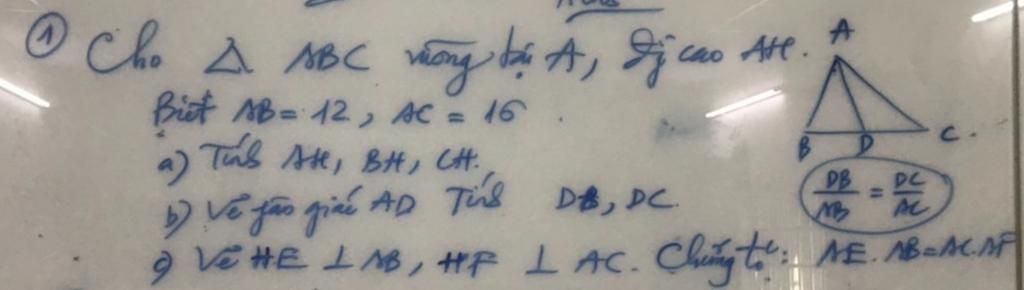 ① Cho △ ABC vuông tại A, đg cao AH.
Biết AB = 12, AC = 16.
a) Tính AH, BH, CH.
b) Vẽ phân giác AD Tính DB, DC.
c) Vẽ HE ⊥ AB, HF ⊥ AC. Chứng tỏ: AE. AB = AC. AF
A
B D C.
DB/AB = DC/AC